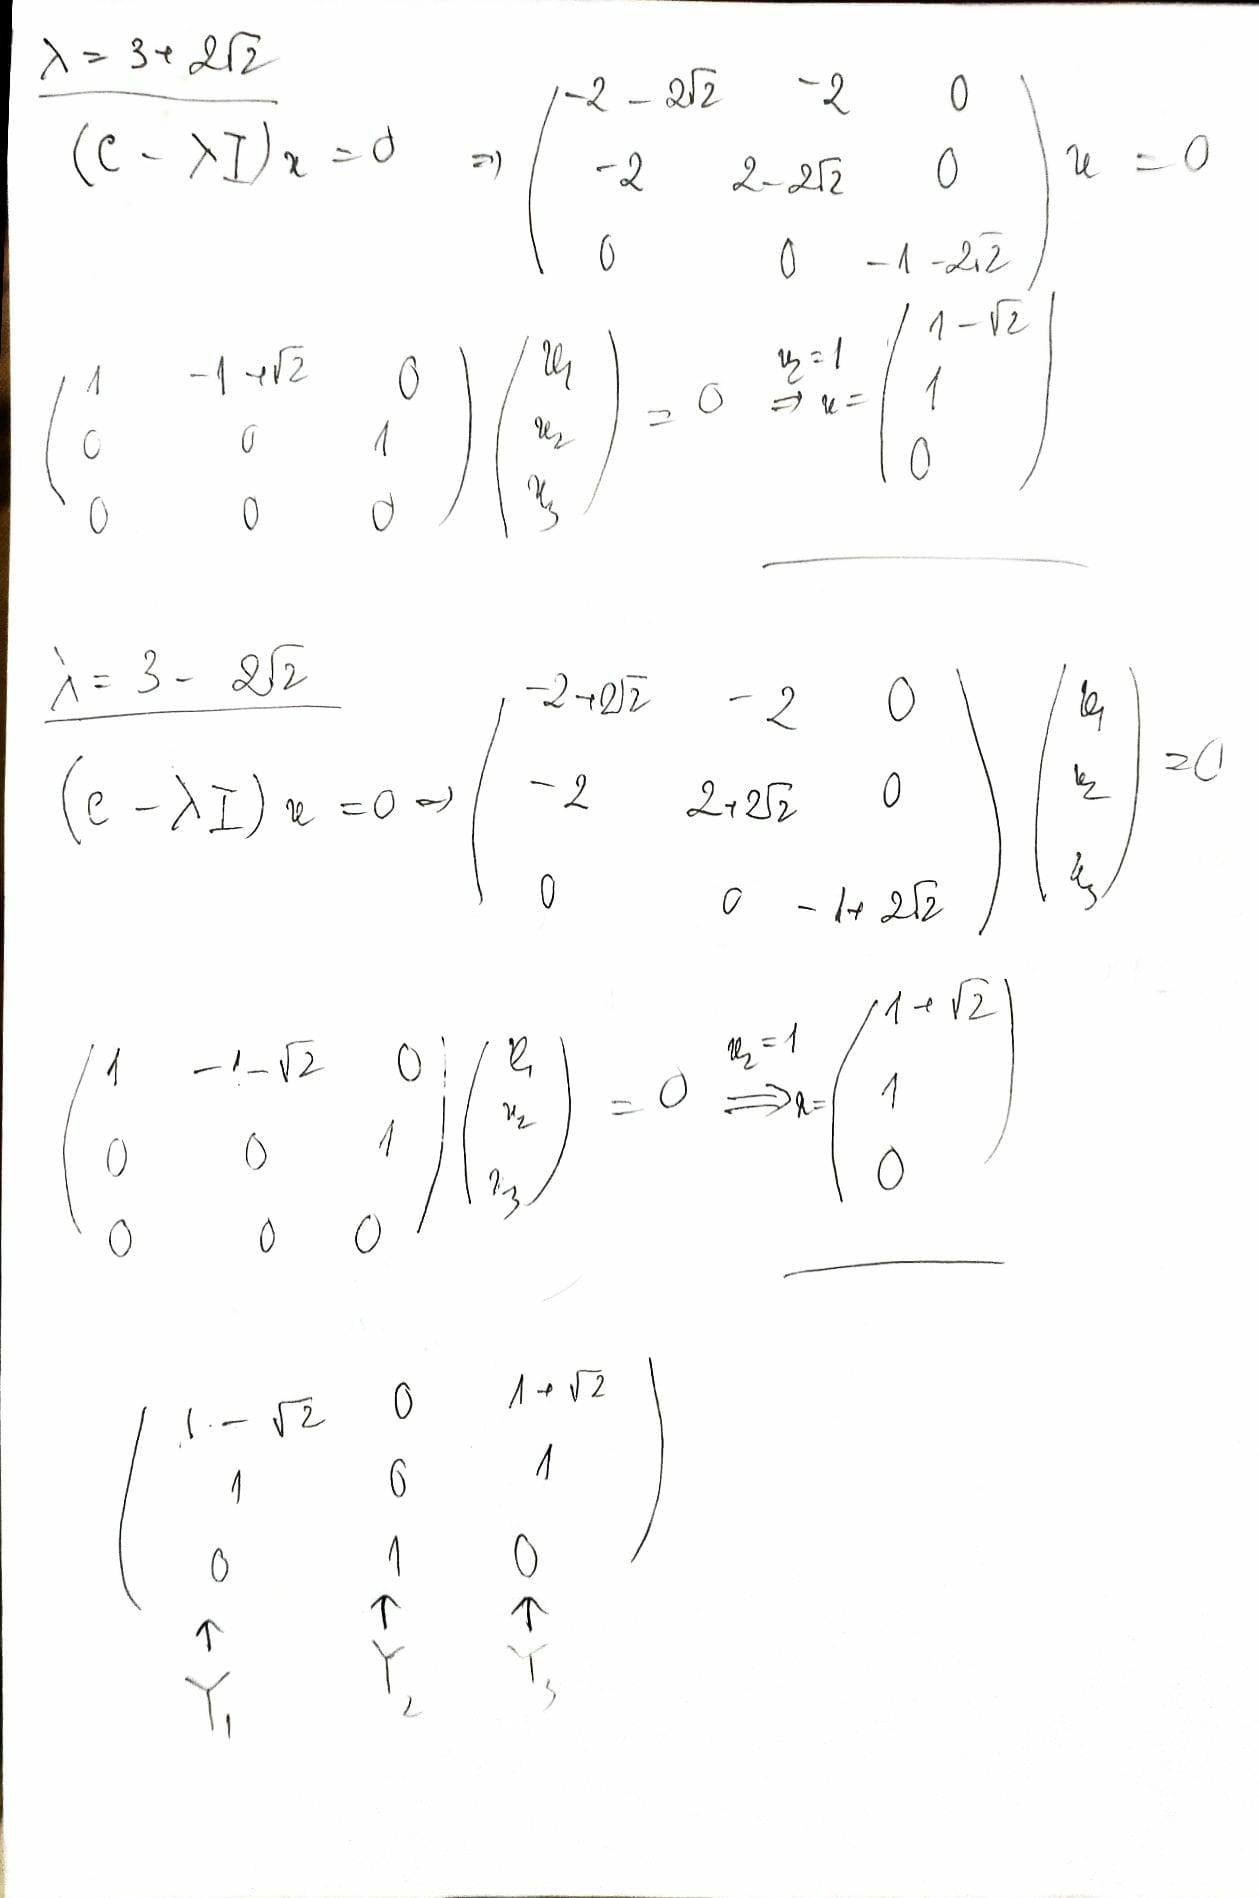 λ = 3 + 2√2
(C - λI) x = 0 ⇒ ( -2 - 2√2 -2 0
-2 2 - 2√2 0
0 0 -1 - 2√2 ) x = 0
( 1 -1 + √2 0
0 0 1
0 0 0 ) ( x₁
x₂
x₃ ) = 0 x₂ = 1 ⇒ x = ( 1 - √2
1
0 )
λ = 3 - 2√2
(C - λI) x = 0 ⇒ ( -2 + 2√2 -2 0
-2 2 + 2√2 0
0 0 -1 + 2√2 ) ( x₁
x₂
x₃ ) = 0
( 1 -1 - √2 0
0 0 1
0 0 0 ) ( x₁
x₂
x₃ ) = 0 x₂ = 1 ⇒ x = ( 1 + √2
1
0 )
( 1 - √2 0 1 + √2
1 0 1
0 1 0 )
↑ ↑ ↑
Y₁ Y₂ Y₃